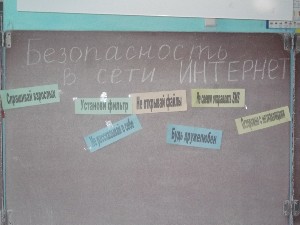 Безопасность
в сети ИНТЕРНЕТ
Спрашивай взрослых
Установи фильтр
Не открывай файлы
Не спеши отправлять SMS
Не рассказывай о себе
Будь дружелюбен
Осторожно с незнакомцами